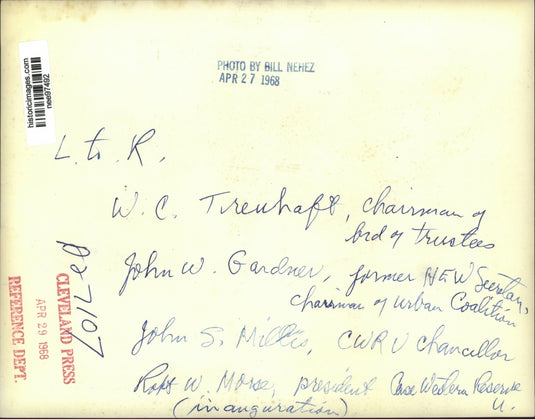 PHOTO BY BILL NEHEZ
APR 27 1968
historicimages.com
nee97492
L. to R.
W. C. Treuhaft, chairman of
brd of trustees
John W. Gardner, former HEW Secretary,
chairman of Urban Coalition
John S. Millis, CWRU Chancellor
Robt W. Morse, president Case Western Reserve
U.
(inauguration)
CLEVELAND PRESS
APR 29 1968
REFERENCE DEPT.